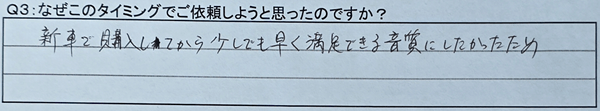 Q3:なぜこのタイミングでご依頼しようと思ったのですか？
新車で購入してから少しでも早く満足できる音質にしたかったため